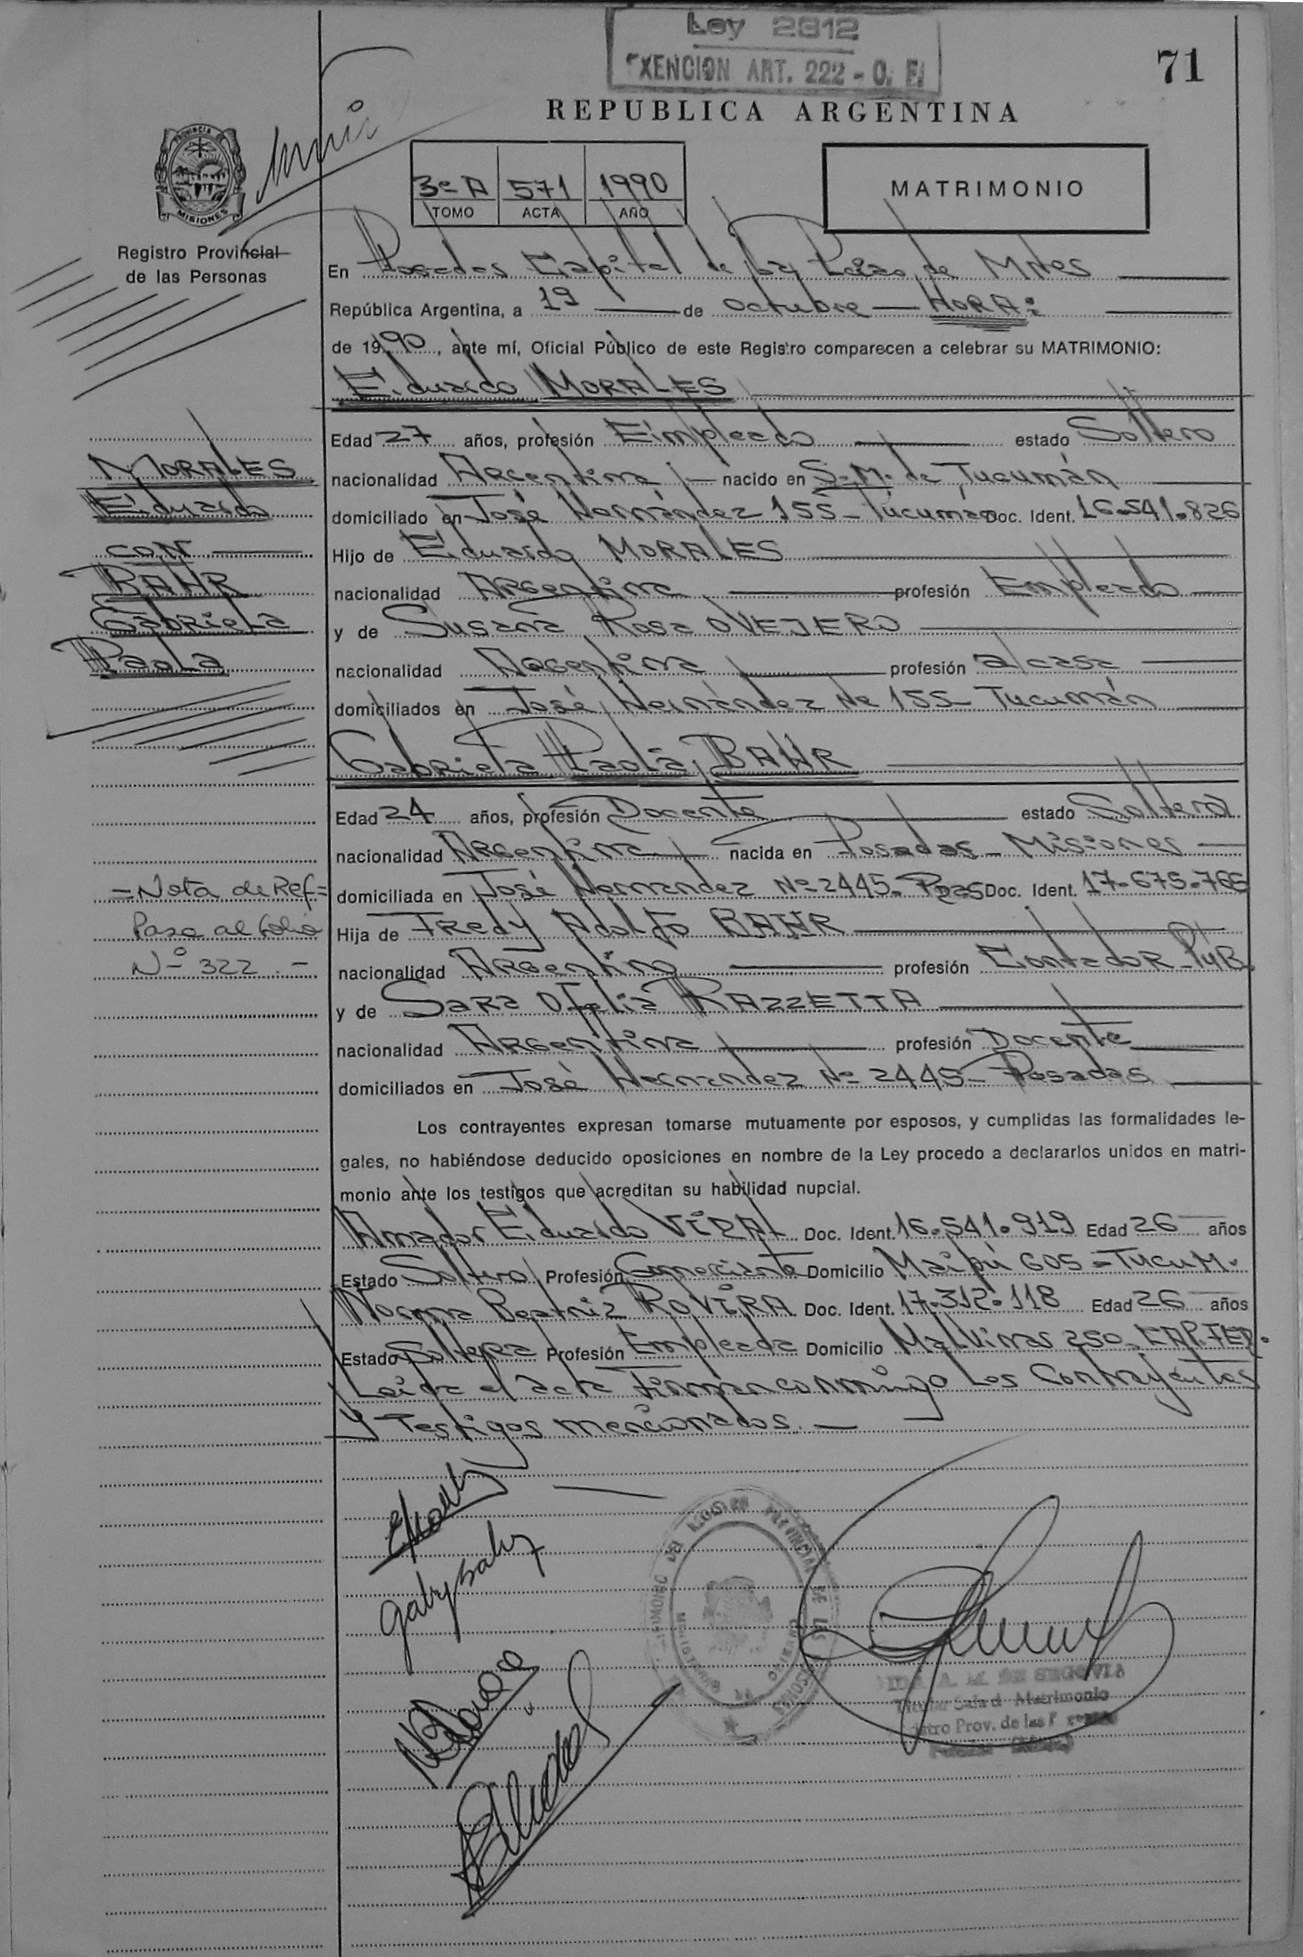 Ley 2812
EXENCION ART. 222 - C. F.
71
REPUBLICA ARGENTINA
PROVINCIA DE
MISIONES
Registro Provincial
de las Personas
3º A 571 1990
TOMO ACTA AÑO
MATRIMONIO
En Posadas Capital de la de Mnes
República Argentina, a 19 de octubre HORA:
de 1990, ante mí, Oficial Público de este Registro comparecen a celebrar su MATRIMONIO:
Eduardo MORALES
Edad 27 años, profesión Empleado estado Soltero
nacionalidad Argentina nacido en S. M. de Tucumán
domiciliado en José Hernández 155 - Tucumán Doc. Ident. 16.541.826
Hijo de Eduardo MORALES
nacionalidad Argentina profesión Empleado
y de Susana Rosa OVEJERO
nacionalidad Argentina profesión a/casa
domiciliados en José Hernández Nº 155 - Tucumán
Gabriela Paola BAHR
Edad 24 años, profesión Docente estado Soltera
nacionalidad Argentina nacida en Posadas - Misiones
domiciliada en José Hernandez Nº 2445 - Pdas Doc. Ident. 17.675.766
Hija de Fredy Adolfo BAHR
nacionalidad Argentino profesión Contador Púb.
y de Sara Ofelia RAZZETTA
nacionalidad Argentina profesión Docente
domiciliados en José Hernandez Nº 2445 - Posadas
Los contrayentes expresan tomarse mutuamente por esposos, y cumplidas las formalidades le-
gales, no habiéndose deducido oposiciones en nombre de la Ley procedo a declararlos unidos en matri-
monio ante los testigos que acreditan su habilidad nupcial.
Amador Eduardo VIDAL Doc. Ident. 16.541.919 Edad 26 años
Estado Soltero Profesión Comerciante Domicilio Maipú 605 - Tucum.
Norma Beatriz ROVIRA Doc. Ident. 17.312.118 Edad 26 años
Estado Soltera Profesión Empleada Domicilio Malvinas 250 - CAP. FED.
Leida el acta Firman conmigo Los Contrayentes
y Testigos mencionados. —
MORALES
Eduardo
CON
BAHR
Gabriela
Paola
= Nota de Ref =
Pasa al folio
Nº 322 . -
gabybahr
A. M. DE SEGOVIA
Titular Sala d Matrimonio
istro Prov. de las P